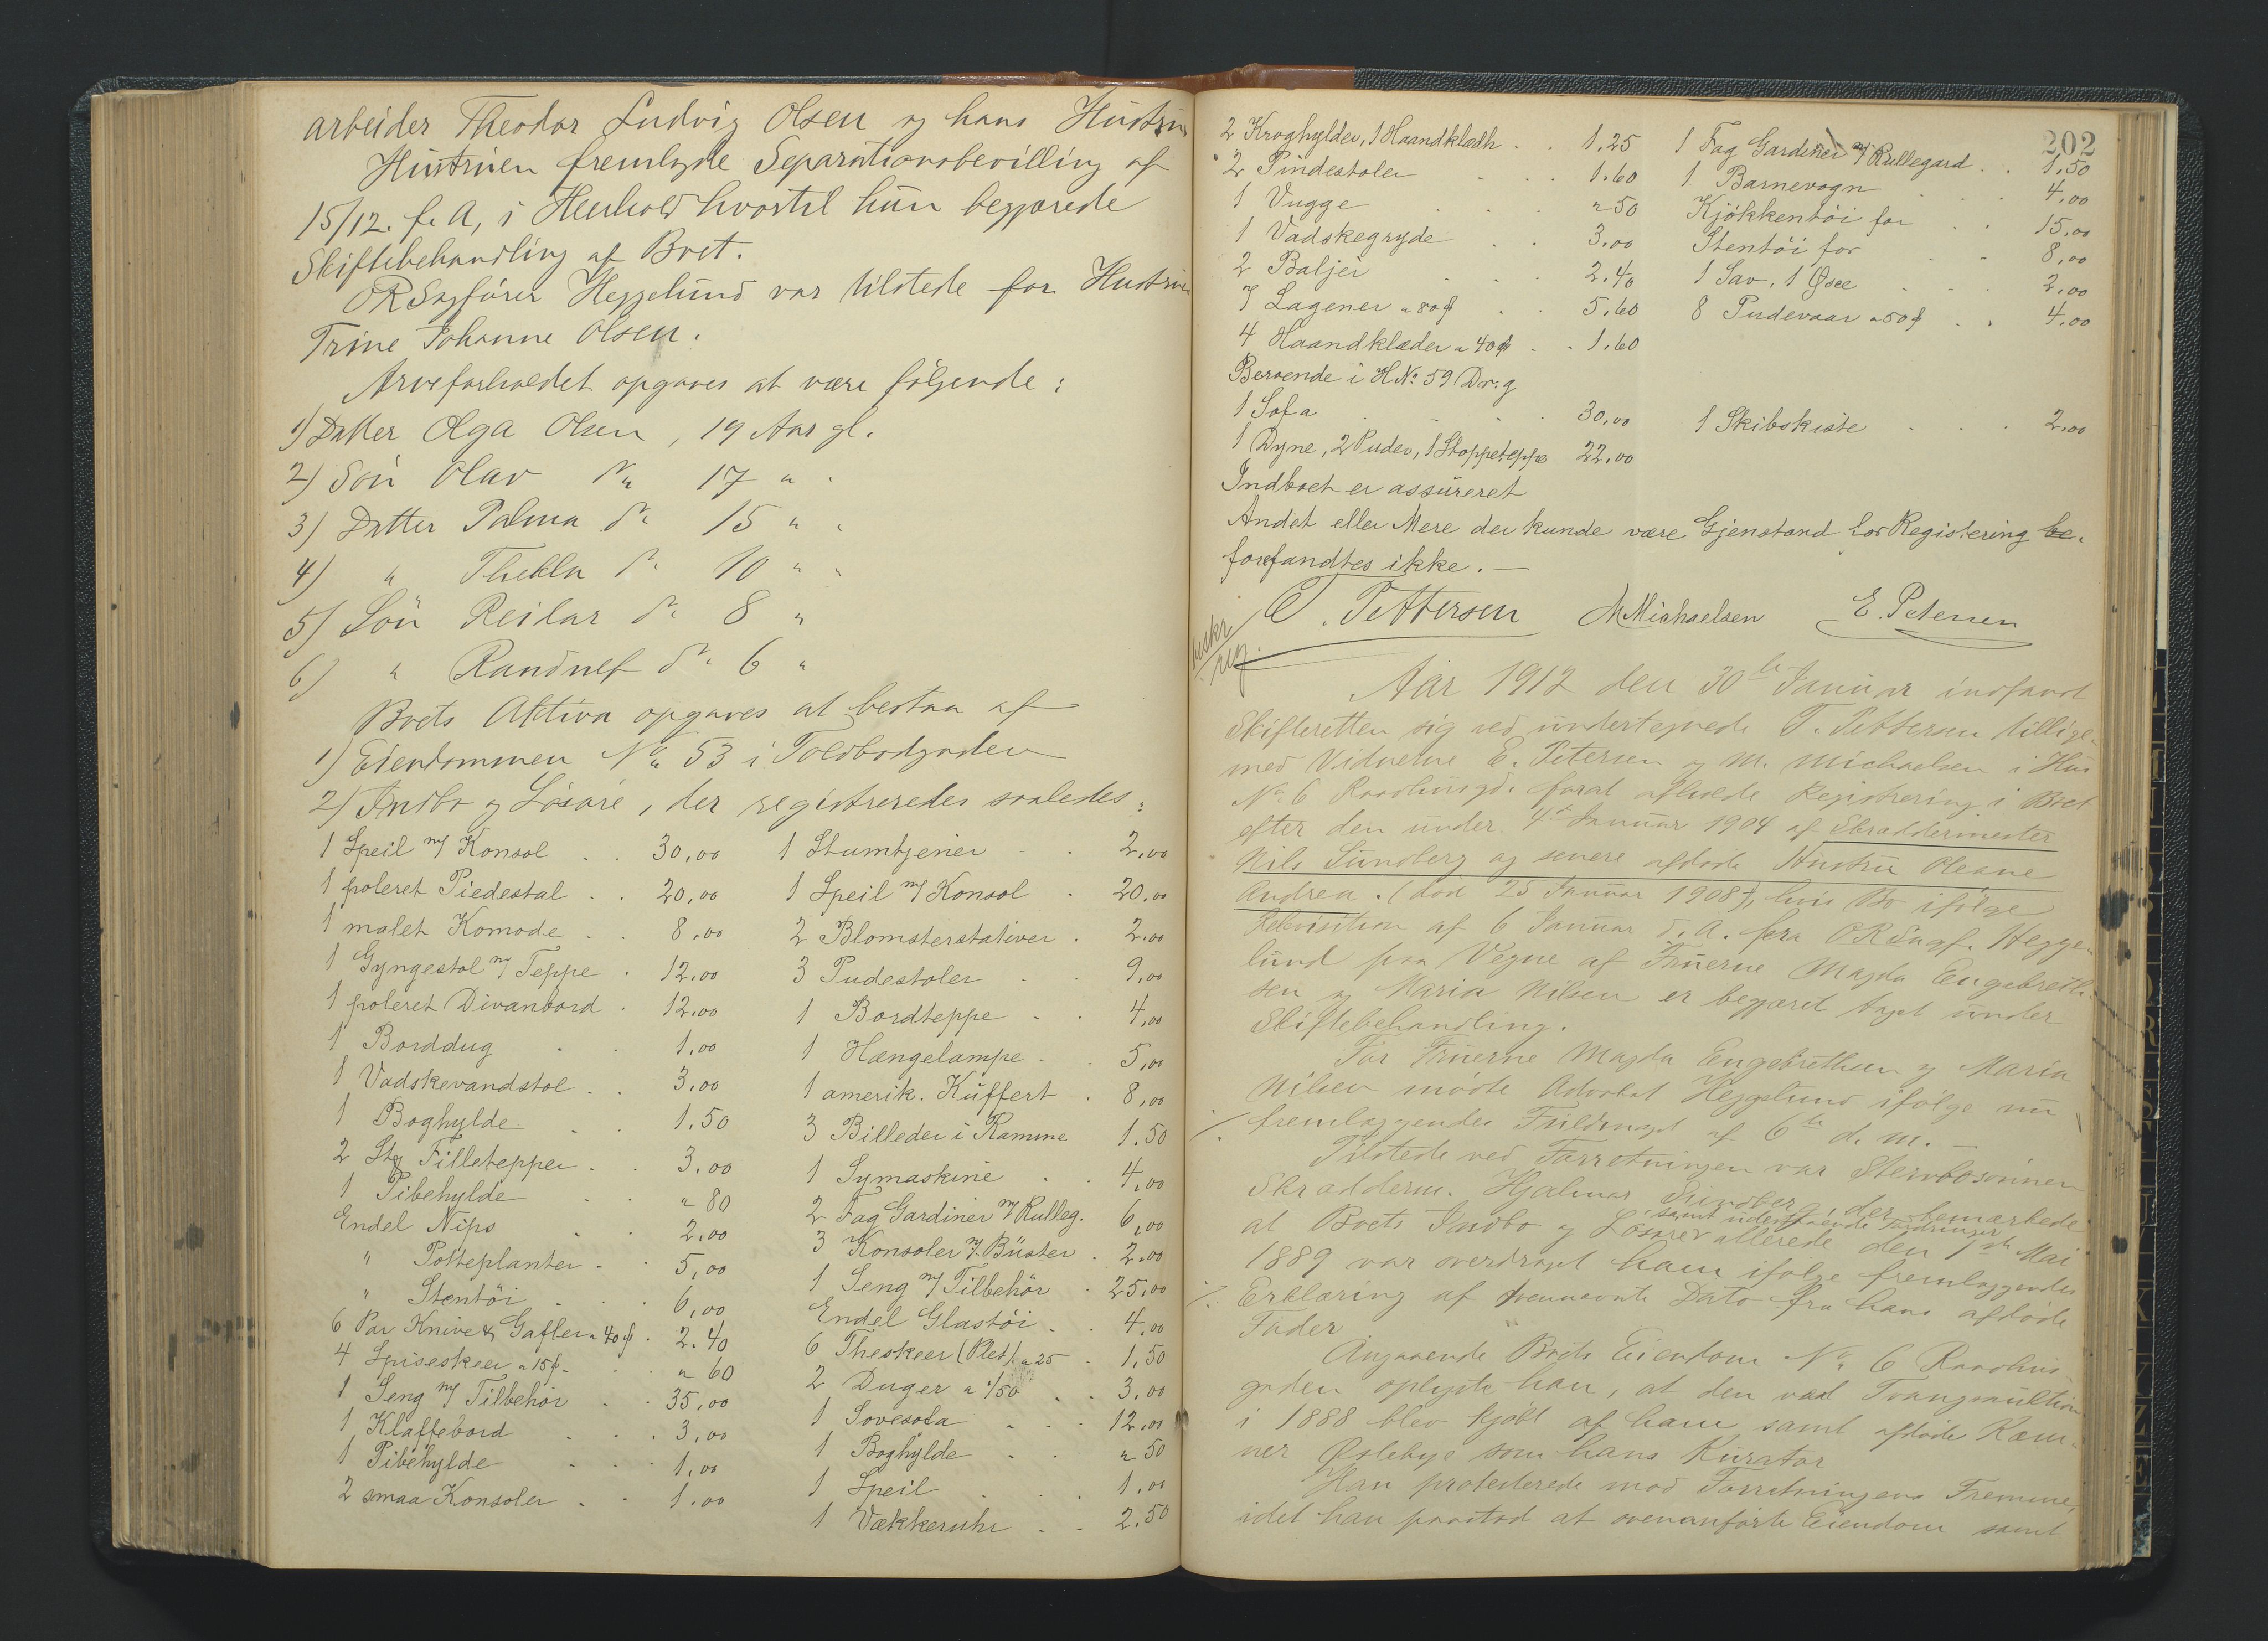 arbeider Theodor Ludvig Olsen og hans Hustru
Hustruen fremlagde Separationsbevilling af
15/12. f. A, i Henhold hvortil hun begjærede
Skiftebehandling af Boet.
ORSagfører Heggelund var tilstede for Hustruen
Trine Johanne Olsen.
Arveforholdet opgaves at være følgende:
1) Datter Olga Olsen, 19 Aar gl.
2) Søn Olav do 17 " "
3) Datter Palma do 15 " "
4) " Thekla do 10 " "
5) Søn Reidar do 8 "
6) " Randulf do 6 "
Boets Aktiva opgaves at bestaa af
1) Eiendommen No 53 i Toldbodgaden
2) Indbo og Løsøre, der registreredes saaledes:
1 Speil m/ Konsol . . 30,00
1 poleret Piedestal . . 20,00
1 malet Komode . . 8,00
1 Gyngestol m/ Teppe . 12,00
1 poleret Divanbord . 12,00
1 Borddug . . 1,00
1 Vadskevandstol . . 3,00
1 Boghylde . . 1.50
2 Stk Filletepper . . 3,00
1 Pibehylde . . " 80
Endel Nips . . 2,00
" Potteplanter . . 5,00
" Stentöi . . . 6,00
6 Par Knive & Gafler a 40 ø . 2.40
4 Spiseskeer a 15 ø . . " 60
1 Seng m/ Tilbehör . . 35,00
1 Klaffebord . . . 3,00
1 Pibehylde . . . 1,00
2 smaa Konsoler . . 1.00
1 Stumtjener . . 2,00
1 Speil m/ Konsol . 20,00
2 Blomsterstativer . 2,00
3 Pudestoler . . 9,00
1 Bordteppe . . 4,00
1 Hængelampe . . 5,00
1 amerik. Kuffert . 8,00
3 Billeder i Ramme 1.50
1 Symaskine . . 4,00
2 Fag Gardiner m/ Rulleg. 6,00
3 Konsoler m/. Büster . 2.00
1 Seng m/ Tilbehör . 25,00
Endel Glastöi . . 4,00
6 Theskeer (Plet) a 25 . 1,50
2 Duger a 1/50 . . 3.00
1 Sovesofa . . . 12,00
1 Boghylde . . " 50
1 Speil . . . 1,00
1 Vækkeruhr . . 2.50
202
2 Kroghylder, 1 Haandklædh . . 1.25
2 Pindestoler . . . 1.60
1 Vugge . . . " 50
1 Vadskegryde . . 3.00
2 Baljer . . . 2.40
7 Lagener a 80 ø . . 5.60
4 Haandklæder a 40 ø . . 1.60
1 Fag Gardiner m/ Rullegard . . 1,50
1 Barnevogn . . 4,00
Kjökkentöi for . . 15,00
Stentöi for . . 8,00
1 Sav, 1 Øse . . . 2,00
8 Pudevaar a 50 ø . . 4,00
Beroende i HNo 59 Dr.g
1 Sofa . . . . 30,00
1 Skibskiste . . . 2,00
1 Dyne, 2 Puder, 1 Stoppeteppe 22,00
Indboet er assureret
Andet eller Mere der kunde være Gjenstand for Registering be-
forefandtes ikke. —
T. Pettersen MMichaelsen E. Petersen
beskr
reg.
Aar 1912 den 30te Januar indfandt
Skifteretten sig ved undertegnede T. Pettersen tillige-
med Vidnerne E. Petersen og M. Michaelsen i Hus
No 6 Raadhusgd. forat afholde Registrering i Boet
efter den under 4de Januar 1904 af Skræddermester
Nils Sundberg og senere afdøde Hustru Oleane
Andrea. (død 25 Januar 1908), hvis Bo ifølge
Rekvisition af 6 Januar d. A. fra ORSagf. Hegge-
lund paa Vegne af Fruerne Magda Engebreth-
sen og Maria Nilsen er begjæret taget under
Skiftebehandling.
For Fruerne Magda Engebrethsen og Maria
Nilsen mødte Advokat Heggelund ifølge nu
fremlæggendes Fuldmagt af 6te d. m. —
Tilstede ved Forretningen var Stervbosønnen
Skrædderm. Hjalmar Sundberg, der bemærkede
samt udestaaende Fordringer
at Boets Indbo og Løsøre allerede den 1ste Mai
1889 var overdraget ham ifølge fremlæggendes
Erklæring af nævnte Dato fra hans afdøde
Fader
Angaaende Boets Eiendom No 6 Raadhus-
gaden oplyste han, at den ved Tvangsauktion
i 1888 blev kjøbt af ham samt afdøde Kæm-
ner Østebye som hans Kurator
Han protesterede mod Forretningens Fremme,
idet han paastod at ovenanførte Eiendom samt